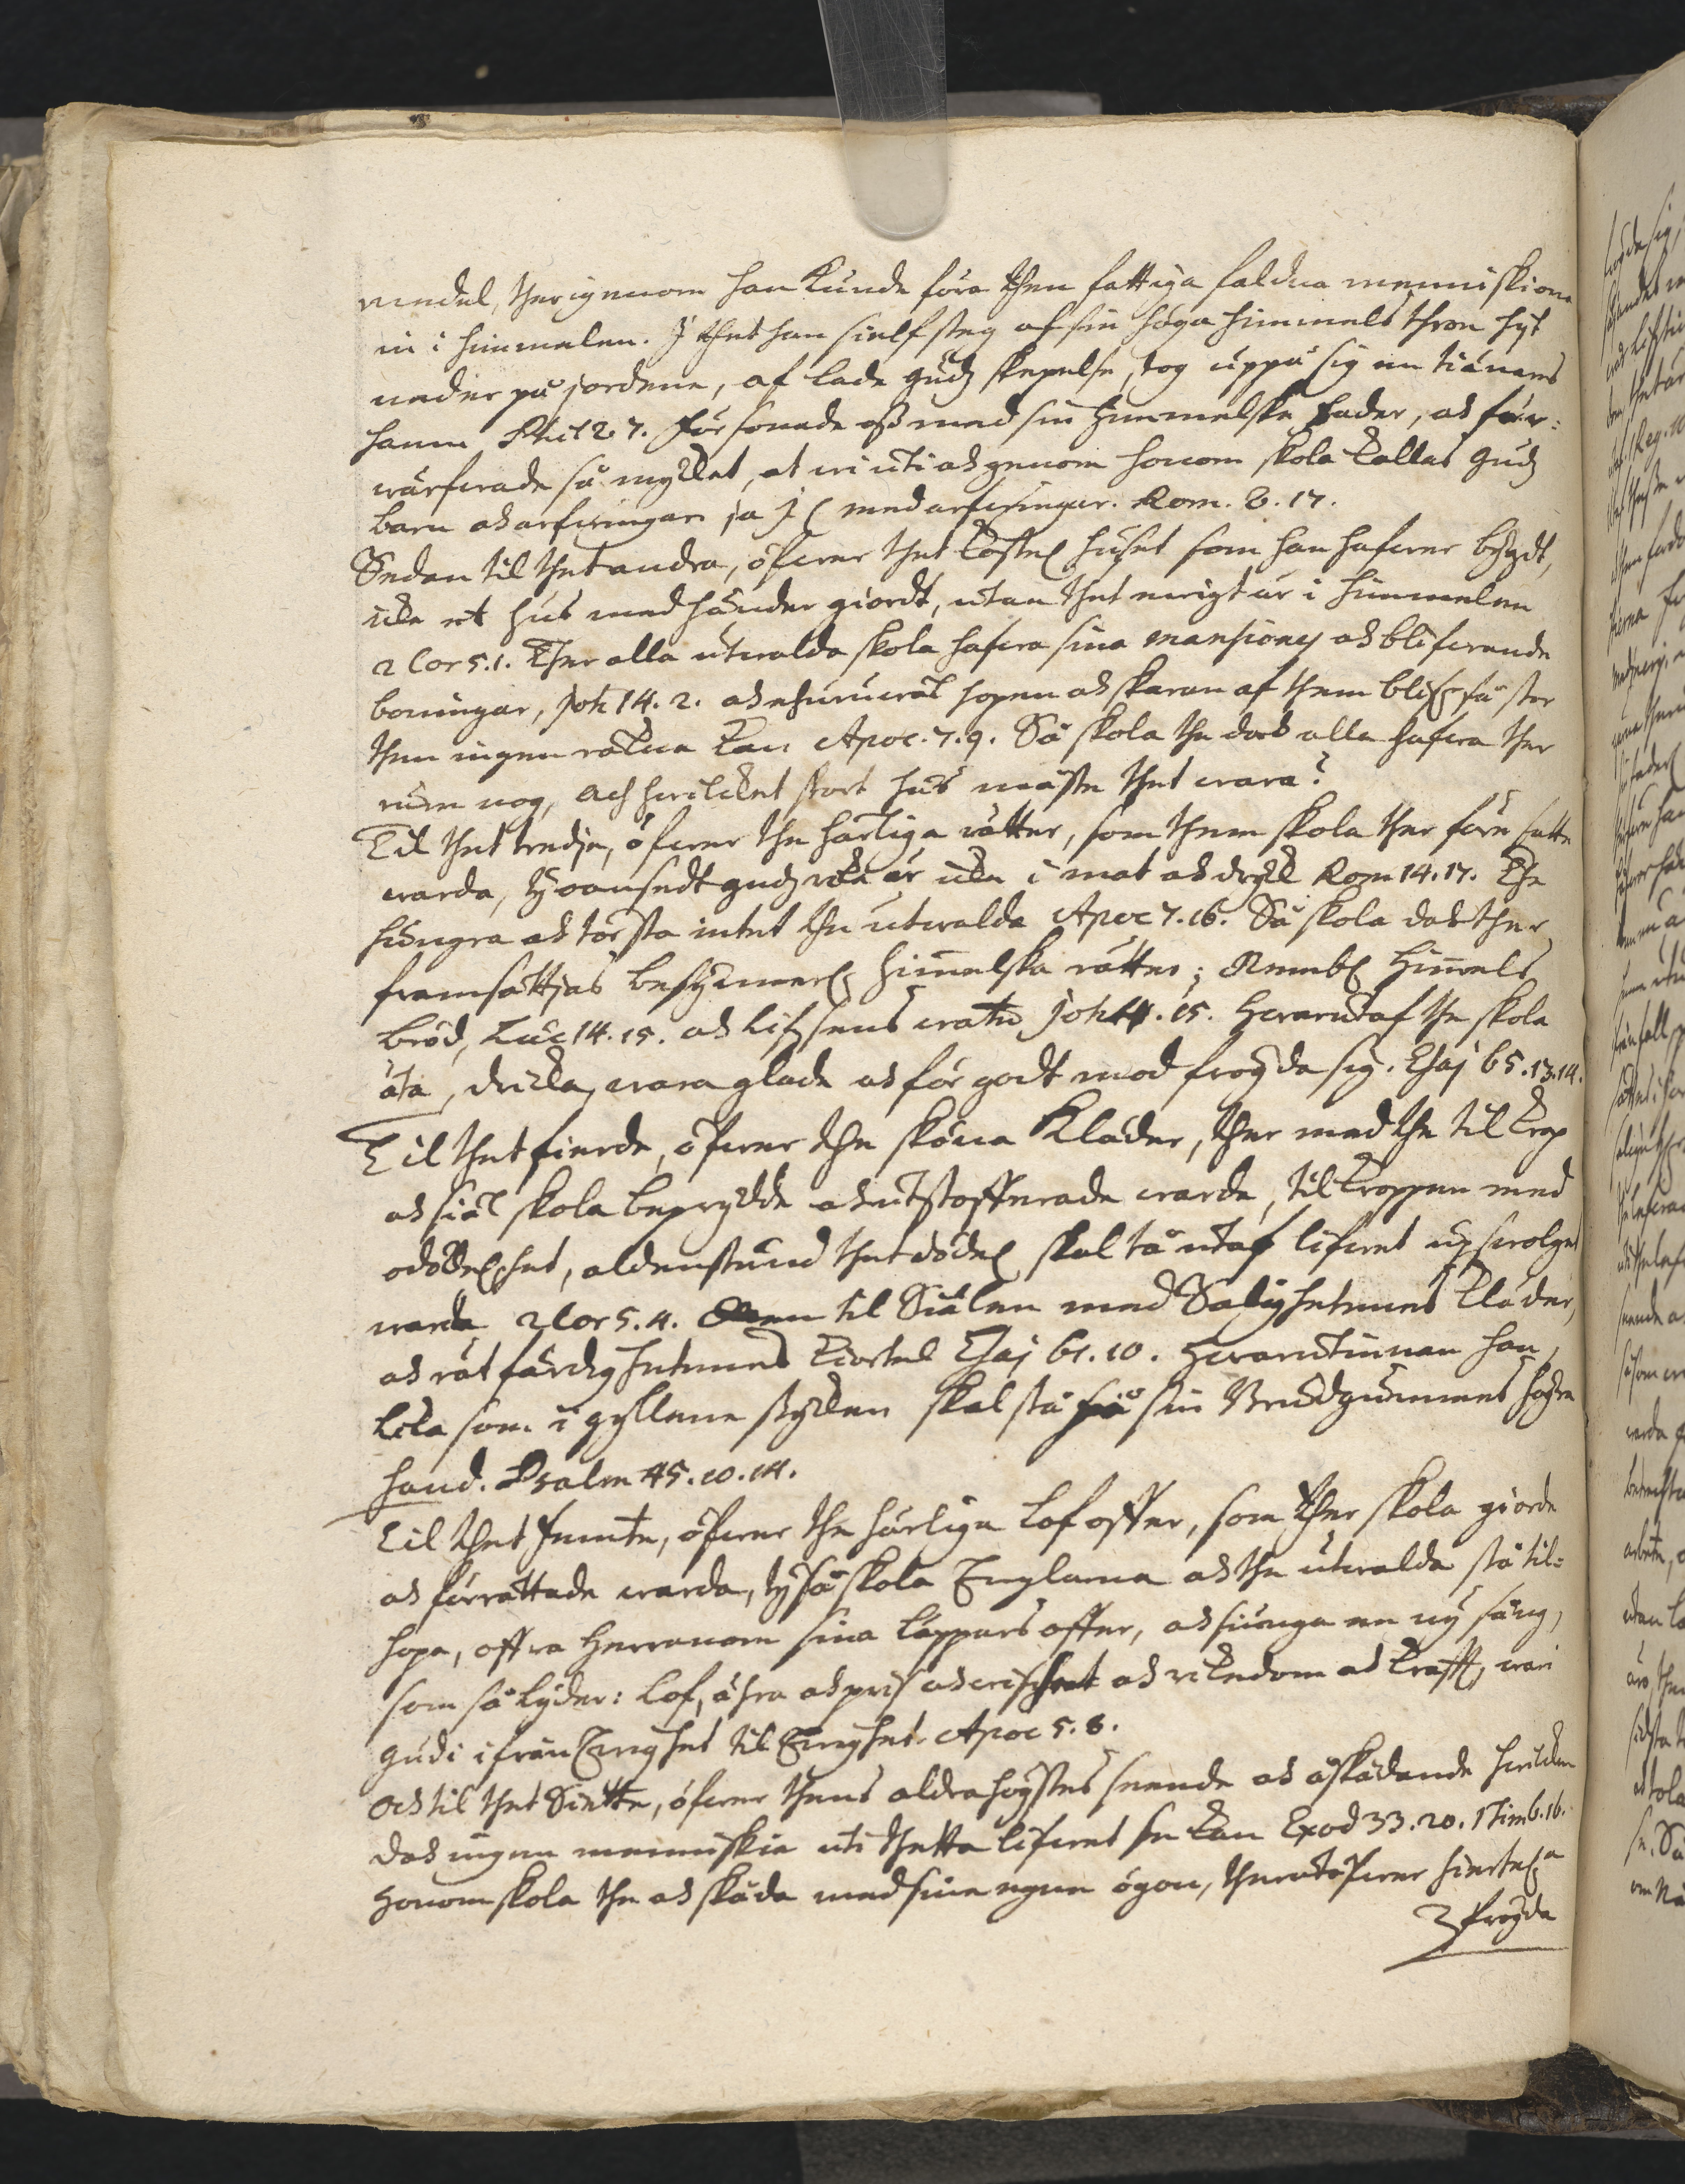 medel, therigenom han kunde föra then fattiga faldna menniskiona
in i himmelen. I thet han sielf steg af sin höga himmels thron hijt
neder på jordene, af lade gudz skepelse, tog uppå sig en tiänares
hamn Phil 2. 7. Försonade oss med sin Himmelske Fader, och för:
wärfwade så myckat, at wi uti och genom honom skola kallas Gudz
barn och arfwingar ja medarfwingar. Rom. 8. 17.
Sedan til thet andra, öfwer thet kostel huset som han hafwer bygdt,
icke ett hus med händer giordt, utan thet ewigt är i himmelen
2 Cor 5. 1. Ther alla utwalda skola hafwa sina mansiones och blifwande
boningar, Joh 14. 2. och ehuruwäl hopen och skaran af them blifr så stor
then ingen räkna kan Apoc. 7. 9. Så skola the doch alla hafwa ther
rum nog, Ach hwilcket stort hus måste thet wara?
Til thet tredje, öfwer the härliga rätter, som them skola ther före satte
warda, ty oansedt gudz rike är icke i mat och dryck Rom 14. 17. The
hungra och törsta intet the utwalda Apoc 7. 16. Så skola doch ther
framsättjas himmelska rätter; Nembl Himmels
bröd, Luc 14. 15. och lifsens watn Joh 4. 15. Hwarutaf the skola
äta, dricka, wara glade och för godt mod fröyda sig. Esaj 65. 13. 14.
Til thet fierde, öfwer the sköna Kläder, ther med the til krop
och siäl skola beprydde och utstofferade warda, til kroppen med
odödelhet, aldenstund thet dödel skal tå utaf lifwet upswolget
warda 2 Cor 5. 4. Men til Siälen med Salighetennes kläder,
och rätfärdighetennes kiortel Esaj 61. 10. Hwarutinnan hon
lika som i gyllene stycken skal stå på sin Brudgummes högra
hand. Psalm 45. 10. 14.
Til thet femte, öfwer the härliga Lofoffer, som ther skola giorde
och förrättade warda, ty så skola Englarna och the utwalda stå til:
hopa, offra Herranom sina läppars offer, och siunga en ny sång,
som så lyder: Lof, ähra och pris och wishet och rikedom och krafft, wari
Gudi ifrån Ewighet til Ewighet. Apoc 5. 8.
Och til thet Siette, öfwer thens aldrahögstes seende och åskådande hwilcken
doch ingen menniskia uti thetta lifwet se kan Exod 33. 20. 1 Tim 6. 16.
Honom skola the och skåda med sina egna ögon, therutöfwer hiertel.a
fröyda